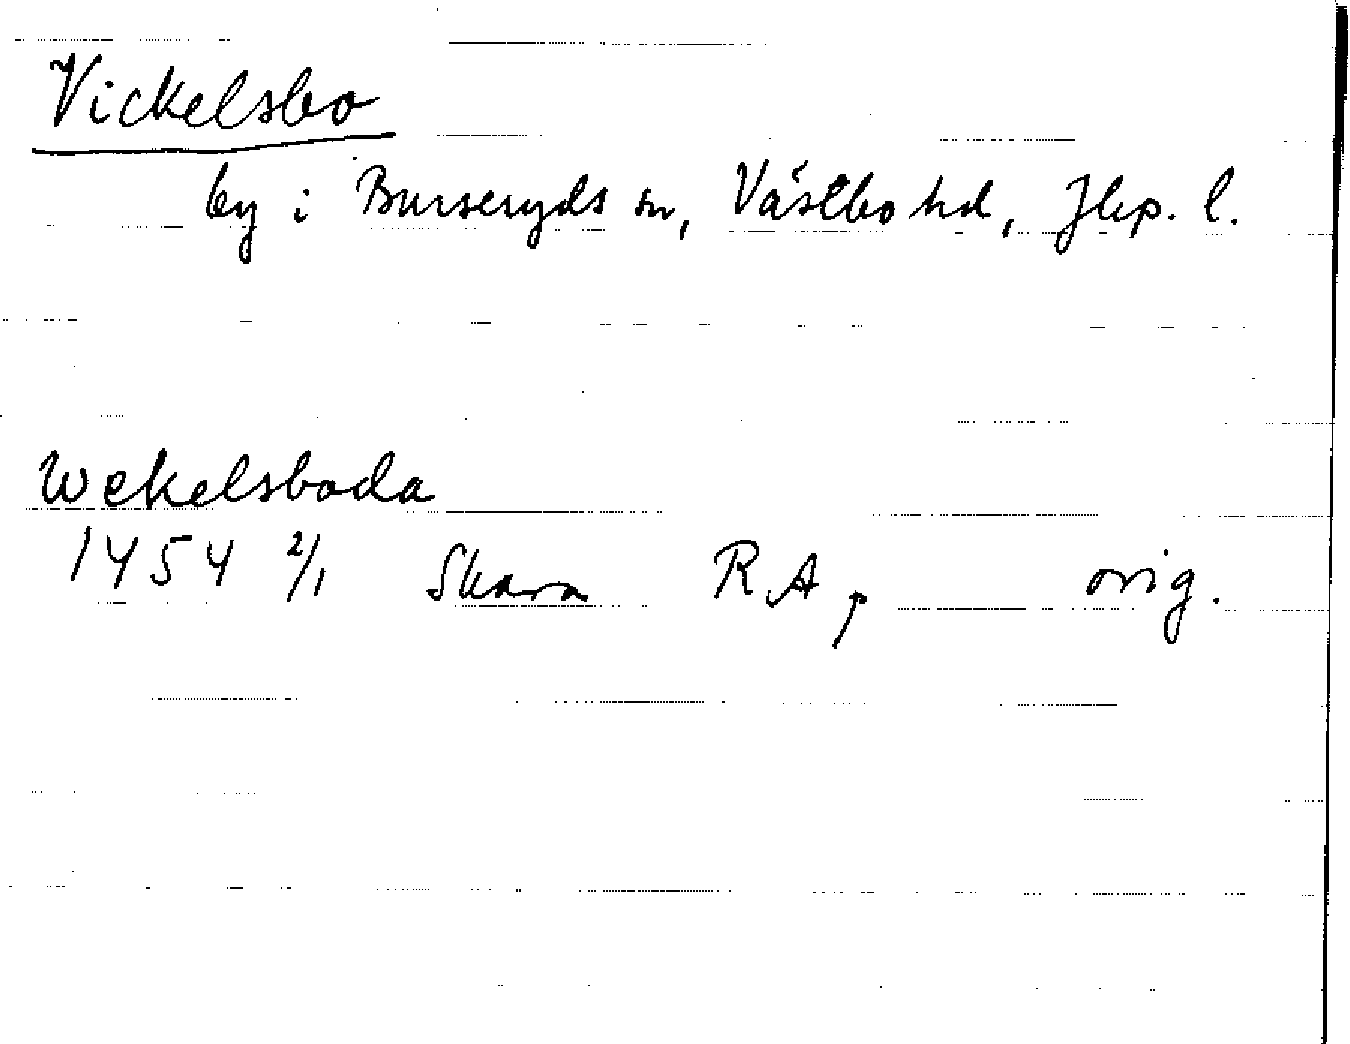 Vickelsbo
by i Burseryds sn, Västbo hd, Jkp. l.
Wekelsboda
1454 2/1 Skara RA, orig.